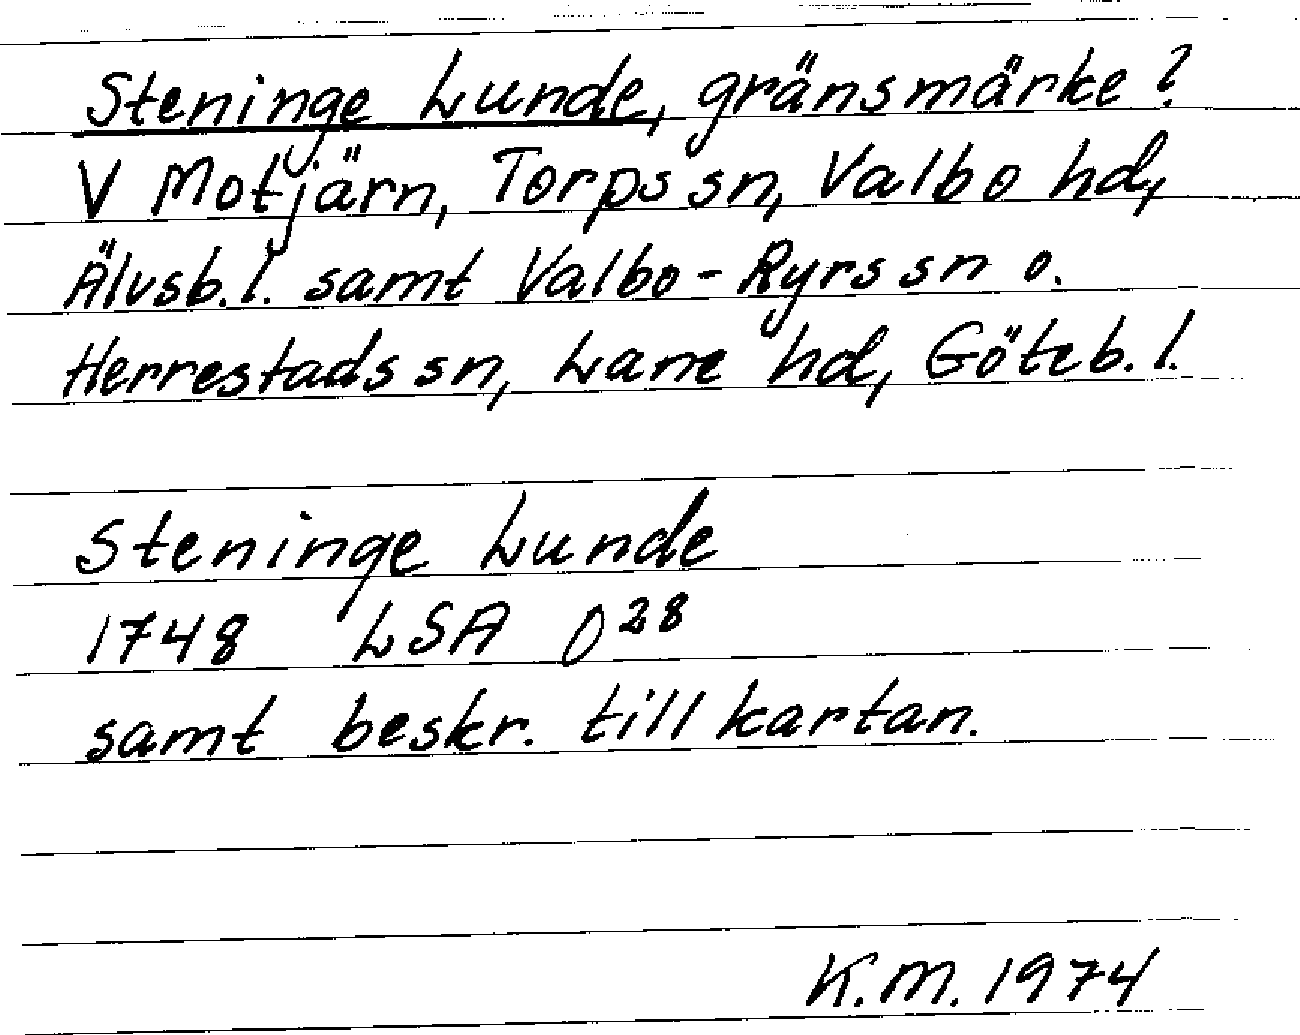 Steninge Lunde, gränsmärke?
V Motjärn, Torps sn, Valbo hd,
Älvsb. l. samt Valbo-Ryrs sn o.
Herrestads sn, Lane hd, Göteb. l.
Steninge Lunde
1748 LSA O 28
samt beskr. till kartan.
K.M. 1974